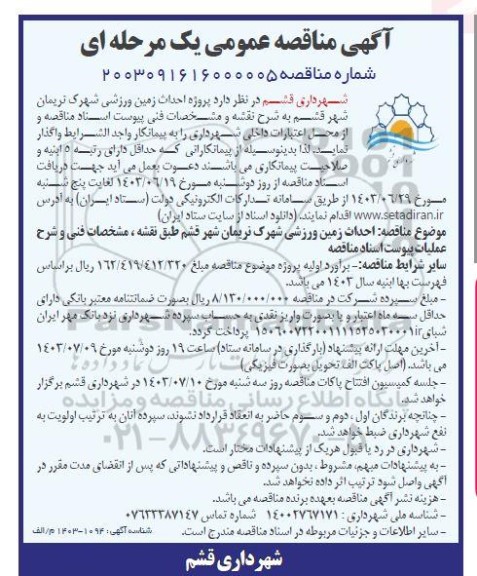 آگهی مناقصه عمومی یک مرحله ای
شماره مناقصه ۲۰۰۳۰۹۱۶۱۶۰۰۰۰۰۵
شهرداری قشم در نظر دارد پروژه احداث زمین ورزشی شهرک نریمان
شهر قشم به شرح نقشه و مشخصات فنی پیوست اسناد مناقصه و
از محل اعتبارات داخلی شهرداری را به پیمانکار واجد الشرایط واگذار
نماید، لذا بدینوسیله از پیمانکارانی که حداقل دارای رتبه ۵ ابنیه و
صلاحیت پیمانکاری می باشند دعوت بعمل می آید جهت دریافت
اسناد مناقصه از روز دوشنبه مورخ ۱۴۰۳/۰۶/۱۹ لغایت پنج شنبه
مورخ ۱۴۰۳/۰۶/۲۹ از طریق سامانه تدارکات الکترونیکی دولت (ستاد ایران) به آدرس
www.setadiran.ir اقدام نمایند. (دانلود اسناد از سایت ستاد ایران)
موضوع مناقصه: احداث زمین ورزشی شهرک نریمان شهر قشم طبق نقشه ، مشخصات فنی و شرح
عملیات پیوست اسناد مناقصه
سایر شرایط مناقصه:- برآورد اولیه پروژه موضوع مناقصه مبلغ ۱۶۲/۴۱۹/۴۱۲/۳۲۰ ریال براساس
فهرست بها ابنیه سال ۱۴۰۳ می باشد.
- مبلغ سپرده شرکت در مناقصه ۸/۱۳۰/۰۰۰/۰۰۰ ریال بصورت ضمانتنامه معتبر بانکی دارای
حداقل سه ماه اعتبار و یا بصورت واریز نقدی به حساب سپرده شهرداری نزد بانک مهر ایران
شبای پرداخت گردد.
- آخرین مهلت ارائه پیشنهاد (بارگذاری در سامانه ستاد) ساعت ۱۹ روز دوشنبه مورخ ۱۴۰۳/۰۷/۰۹
می باشد. (اصل پاکت الف تحویل بصورت فیزیکی)
- جلسه کمیسیون افتتاح پاکات مناقصه روز سه شنبه مورخ ۱۴۰۳/۰۷/۱۰ در شهرداری قشم برگزار
خواهد شد.
- چنانچه برندگان اول ، دوم و سوم حاضر به انعقاد قرارداد نشوند، سپرده آنان به ترتیب اولویت به
نفع شهرداری ضبط خواهد شد.
- شهرداری در رد یا قبول هریک از پیشنهادات مختار است.
- به پیشنهادات مبهم، مشروط ، بدون سپرده و ناقص و پیشنهاداتی که پس از انقضای مدت مقرر در
آگهی واصل شود ترتیب اثر داده نخواهد شد.
- هزینه نشر آگهی مناقصه بعهده برنده مناقصه می باشد.
- شناسه ملی شهرداری : ۱۴۰۰۲۷۶۷۱۷۱ شماره تماس ۰۷۶۳۳۳۸۷۱۴۷
- سایر اطلاعات و جزئیات مربوطه در اسناد مناقصه مندرج است.
شناسه آگهی: ۱۰۹۴-۱۴۰۳ م/الف
شهرداری قشم